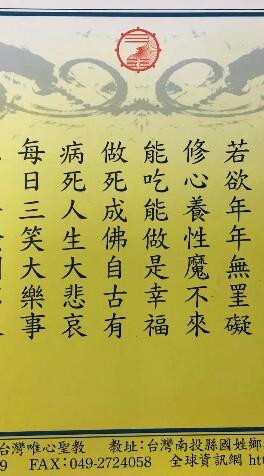 若欲年年無罣礙
修心養性魔不來
能吃能做是幸福
做死成佛自古有
病死人生大悲哀
每日三笑大樂事
台灣唯心聖教 教址:台灣南投縣國姓鄉
9 FAX:049-2724058 全球資訊網 htt